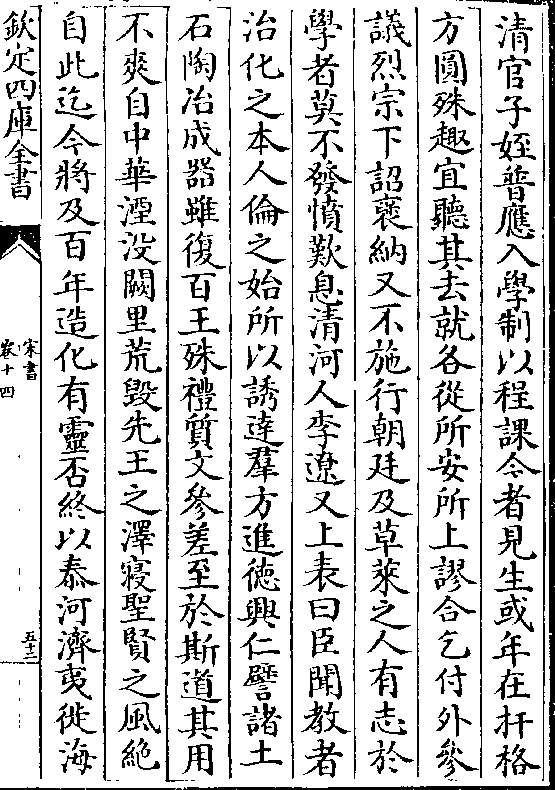 清官子姪普應入學制以程課今者見生或年在扞格
方圓殊趣宜聽其去就各從所安所上謬合乞付外參
議烈宗下詔褒納又不施行朝廷及草萊之人有志於
學者莫不發憤歎息清河人李遼又上表曰臣聞教者
治化之本人倫之始所以誘達羣方進徳興仁譬諸土
石陶冶成器雖復百王殊禮質文參差至於斯道其用
不爽自中華湮没闕里荒毀先王之澤寢聖賢之風絶
自此迄今將及百年造化有靈否終以泰河濟夷徙海
欽定四庫全書
宋書
卷十四
五十三